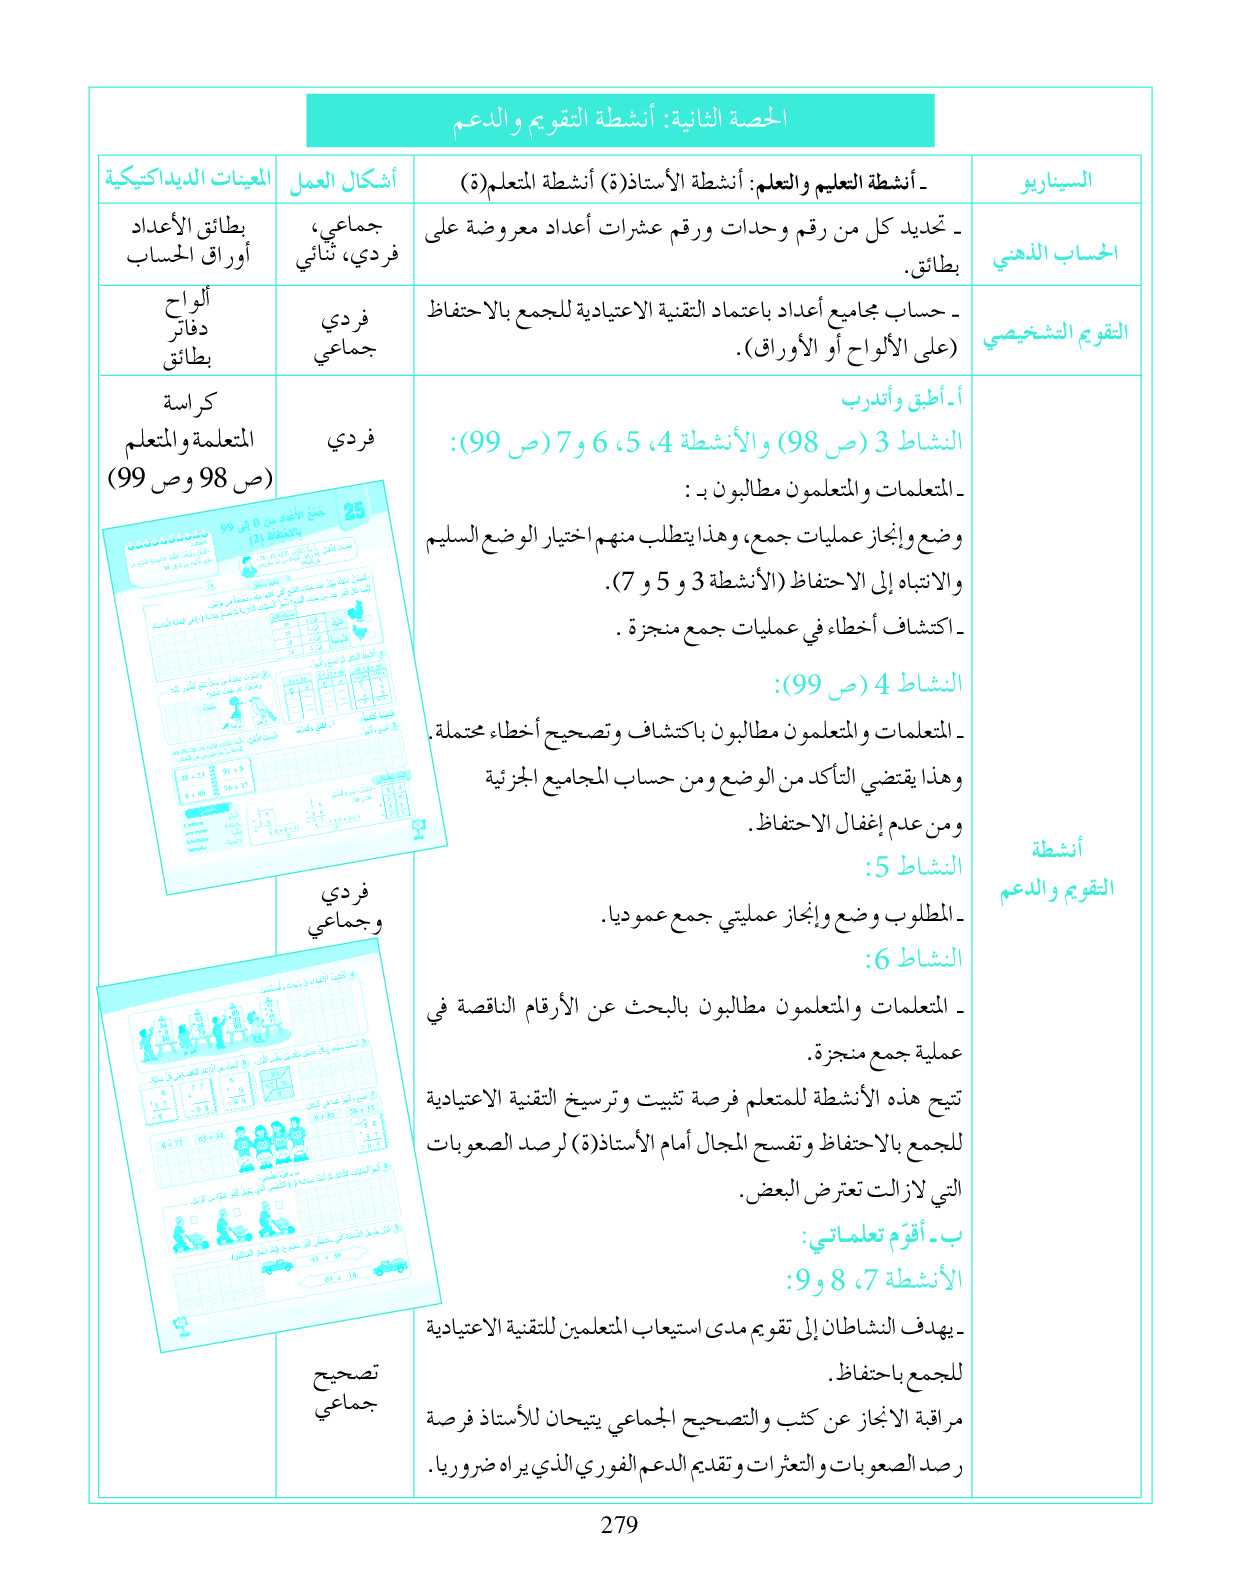 الحصة الثانية: أنشطة التقويم والدعم
السيناريو
ـ أنشطة التعليم والتعلم: أنشطة الأستاذ(ة) أنشطة المتعلم(ة)
أشكال العمل
المعينات الديداكتيكية
الحساب الذهني
ـ تحديد كل من رقم وحدات ورقم عشرات أعداد معروضة على
بطائق.
جماعي،
فردي، ثنائي
بطائق الأعداد
أوراق الحساب
التقويم التشخيصي
ـ حساب مجاميع أعداد باعتماد التقنية الاعتيادية للجمع بالاحتفاظ
(على الألواح أو الأوراق).
فردي
جماعي
ألواح
دفاتر
بطائق
أنشطة
التقويم والدعم
أ ـ أطبق وأتدرب
النشاط 3 (ص 98) والأنشطة 4، 5، 6 و7 (ص 99):
ـ المتعلمات والمتعلمون مطالبون بـ :
وضع وإنجاز عمليات جمع، وهذا يتطلب منهم اختيار الوضع السليم
والانتباه إلى الاحتفاظ (الأنشطة 3 و 5 و 7).
ـ اكتشاف أخطاء في عمليات جمع منجزة .
النشاط 4 (ص 99):
ـ المتعلمات والمتعلمون مطالبون باكتشاف وتصحيح أخطاء محتملة.
وهذا يقتضي التأكد من الوضع ومن حساب المجاميع الجزئية
ومن عدم إغفال الاحتفاظ.
النشاط 5:
ـ المطلوب وضع وإنجاز عمليتي جمع عموديا.
النشاط 6:
ـ المتعلمات والمتعلمون مطالبون بالبحث عن الأرقام الناقصة في
عملية جمع منجزة.
تتيح هذه الأنشطة للمتعلم فرصة تثبيت وترسيخ التقنية الاعتيادية
للجمع بالاحتفاظ وتفسح المجال أمام الأستاذ(ة) لرصد الصعوبات
التي لازالت تعترض البعض.
ب ـ أقوّم تعلمـاتـي:
الأنشطة 7، 8 و9:
ـ يهدف النشاطان إلى تقويم مدى استيعاب المتعلمين للتقنية الاعتيادية
للجمع باحتفاظ.
مراقبة الانجاز عن كثب والتصحيح الجماعي يتيحان للأستاذ فرصة
رصد الصعوبات والتعثرات وتقديم الدعم الفوري الذي يراه ضروريا.
فردي
فردي
وجماعي
تصحيح
جماعي
كراسة
المتعلمة والمتعلم
(ص 98 وص 99)
25
جمع الأعداد من 0 إلى 99
بالاحتفاظ (2)
279